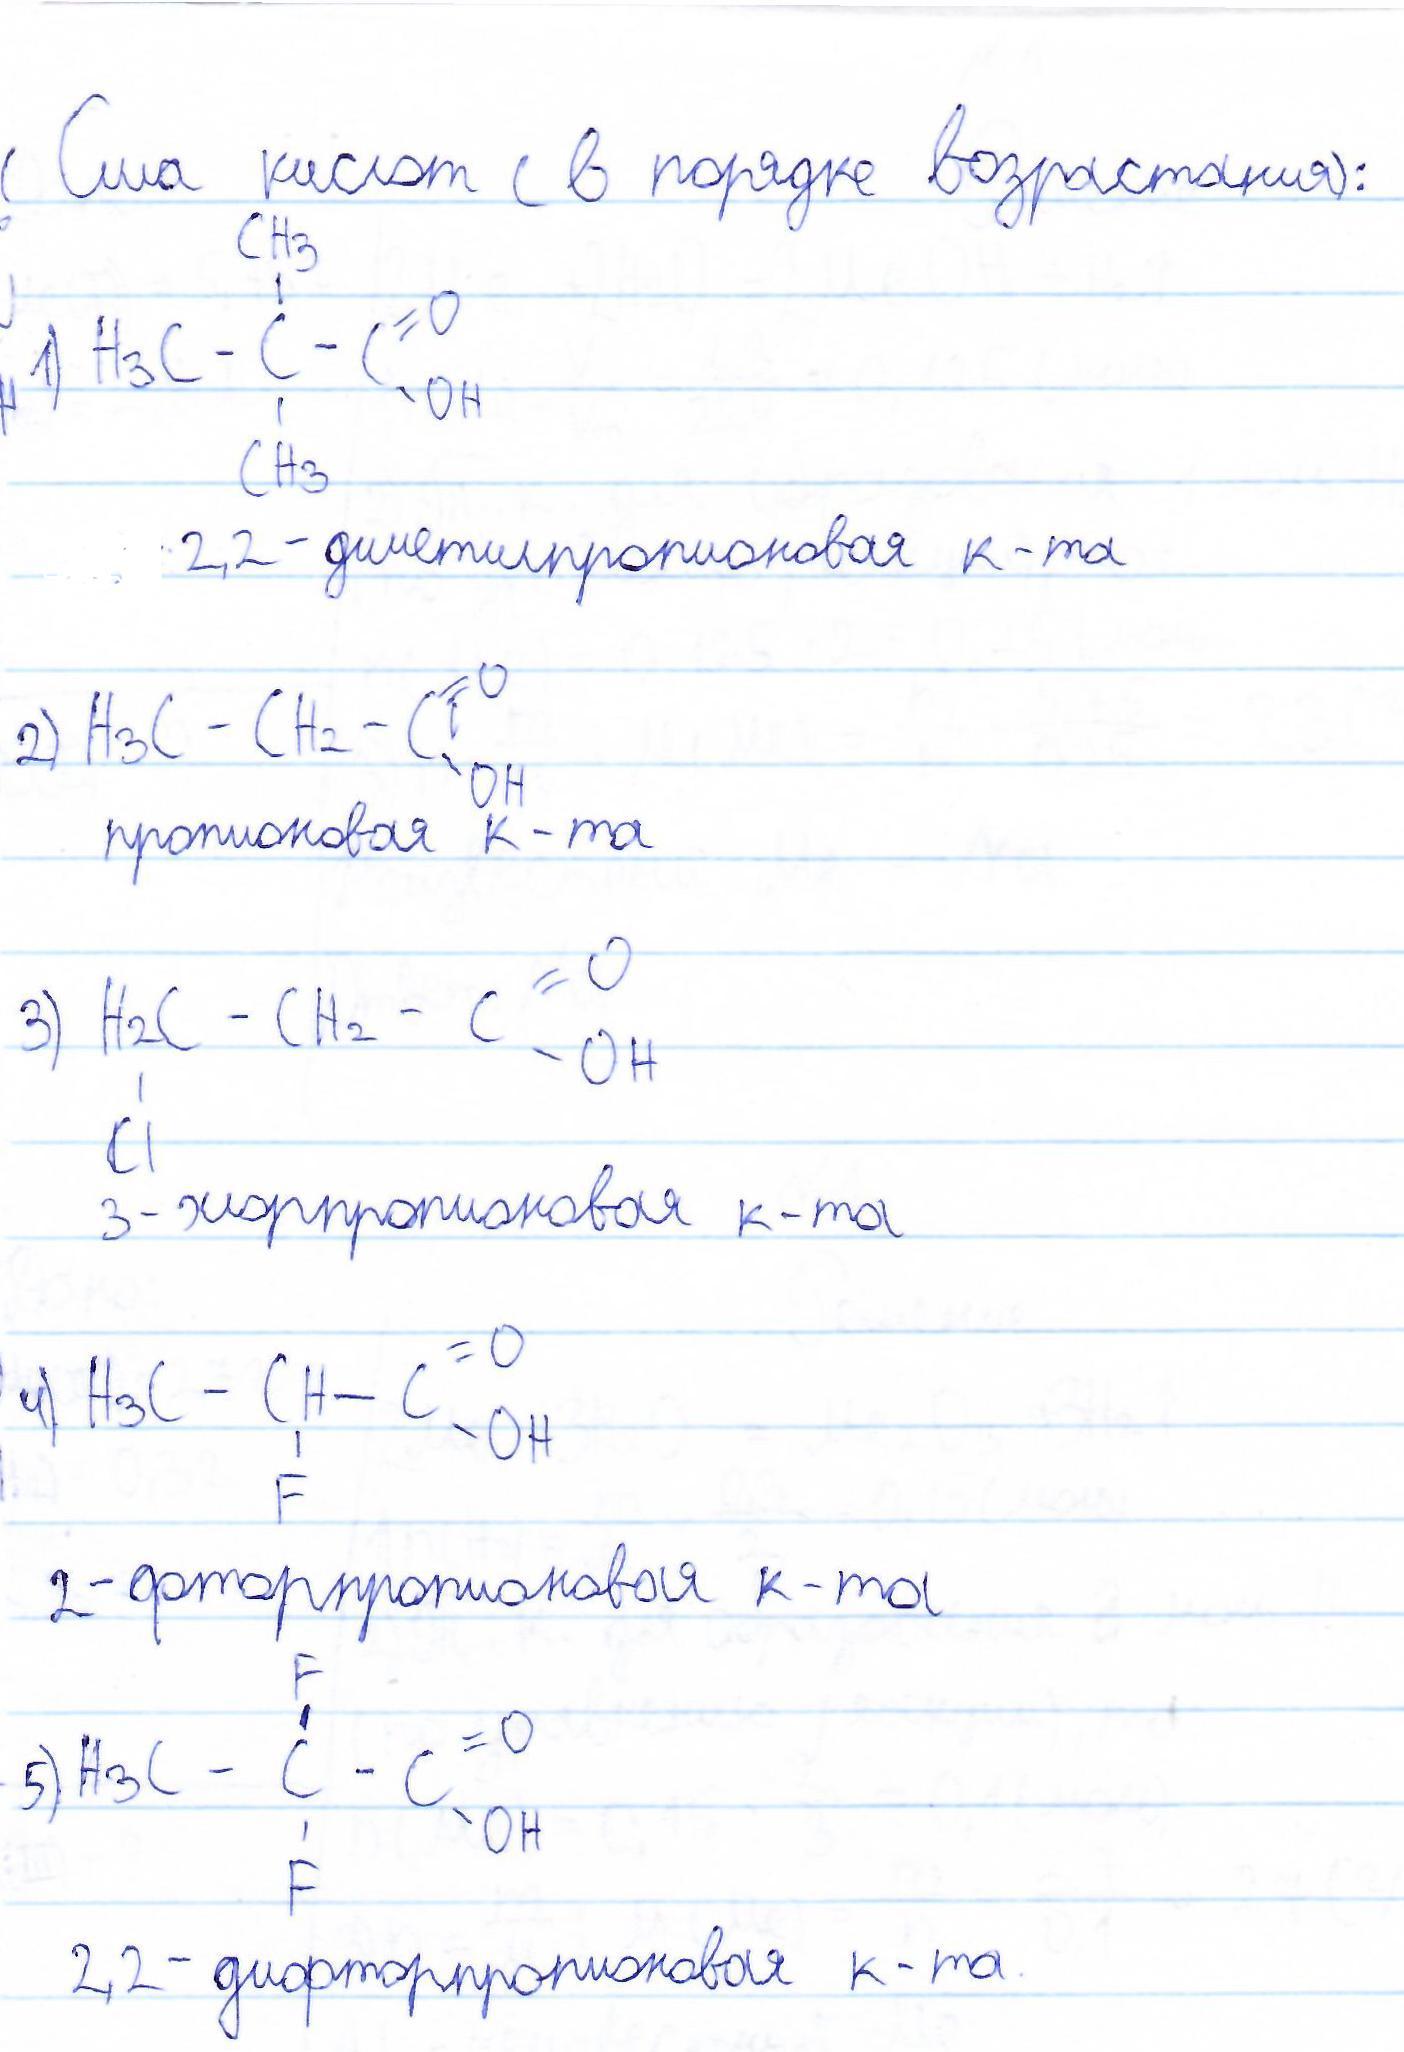 Сила кислот (в порядке возрастания):
CH3
1) H3C - C - C =O
- OH
CH3
2,2-диметилпропионовая к-та
2) H3C - CH2 - C =O
- OH
пропионовая к-та
3) H2C - CH2 - C =O
- OH
Cl
3-хлорпропионовая к-та
4) H3C - CH - C =O
- OH
F
2-фторпропионовая к-та
F
5) H3C - C - C =O
- OH
F
2,2-дифторпропионовая к-та